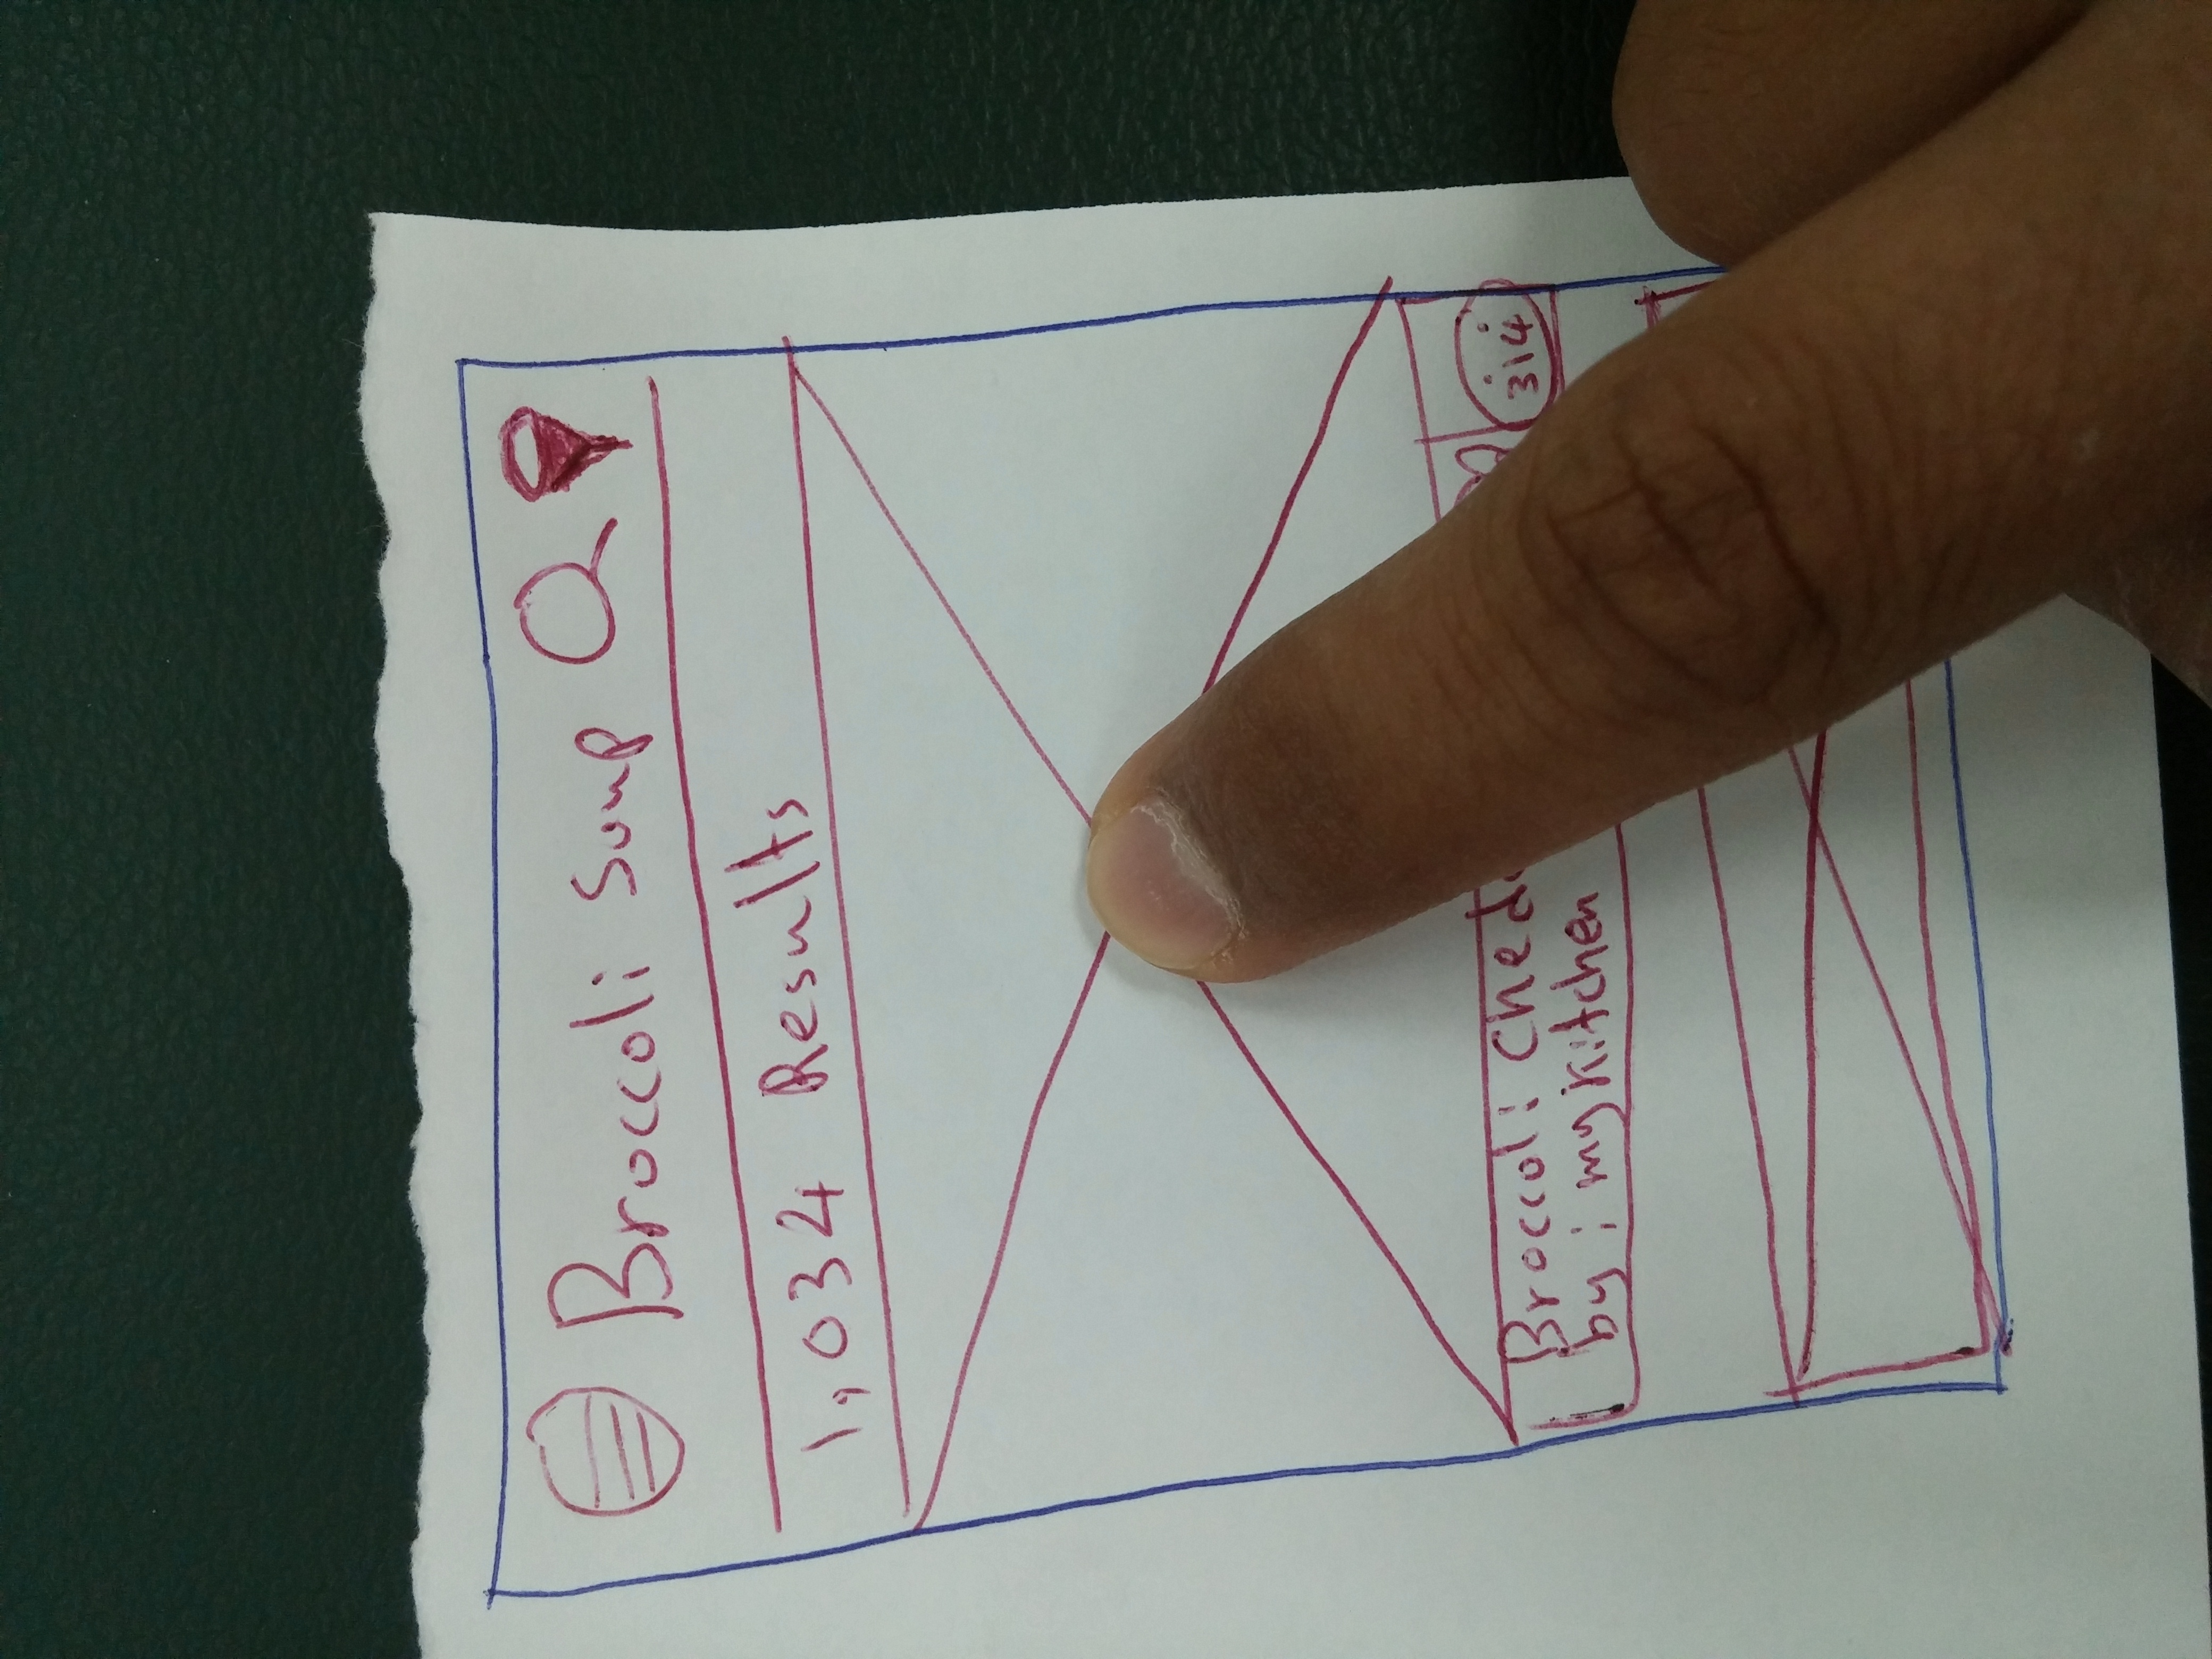 Broccoli Soup
1,034 Results
Broccoli Chedd
by: my Kitchen
314